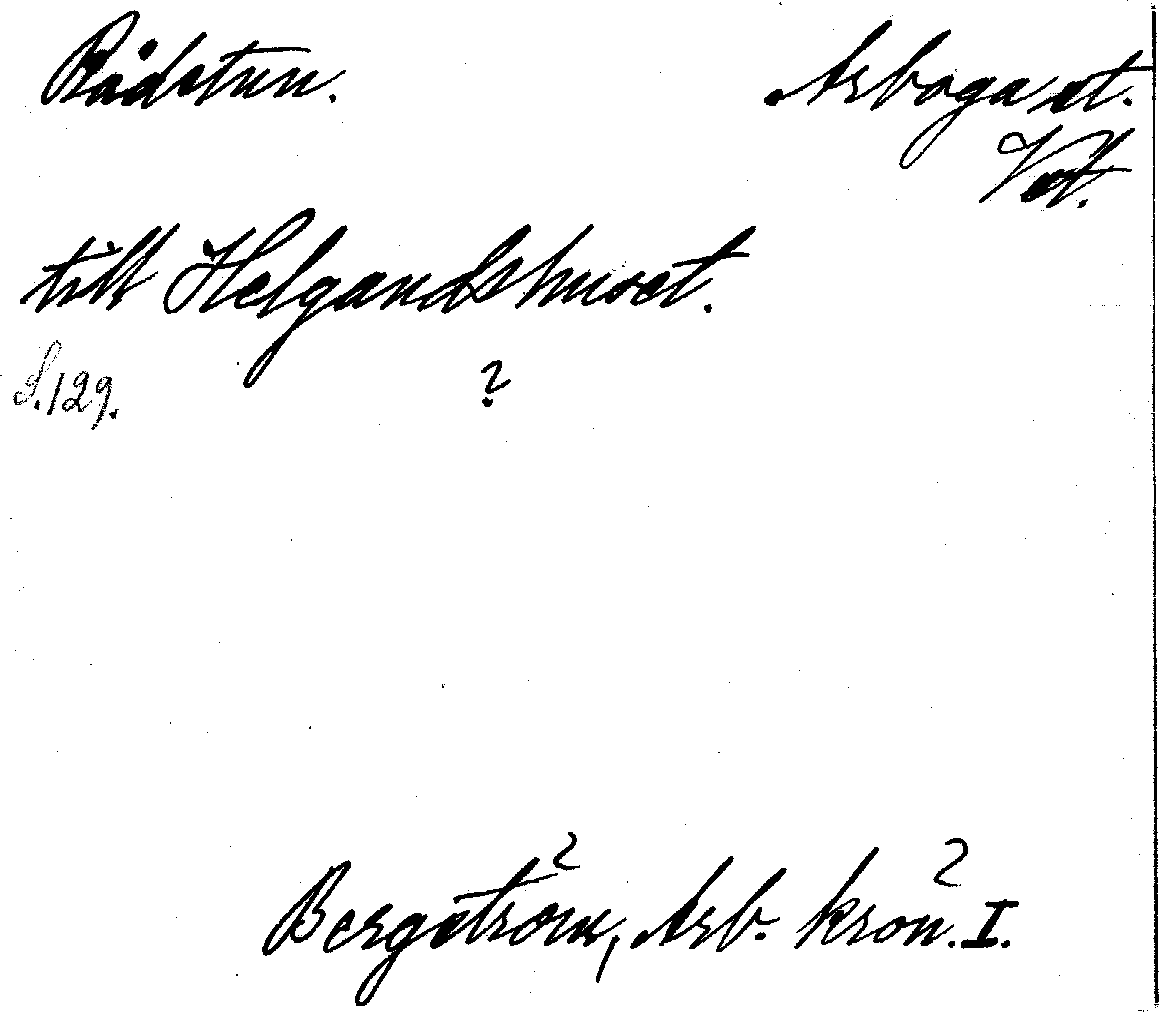 Rådstun.
Arboga st.
Vst.
till Helgandshuset.
S. 129.
?
Bergström, Arb. krön. I.